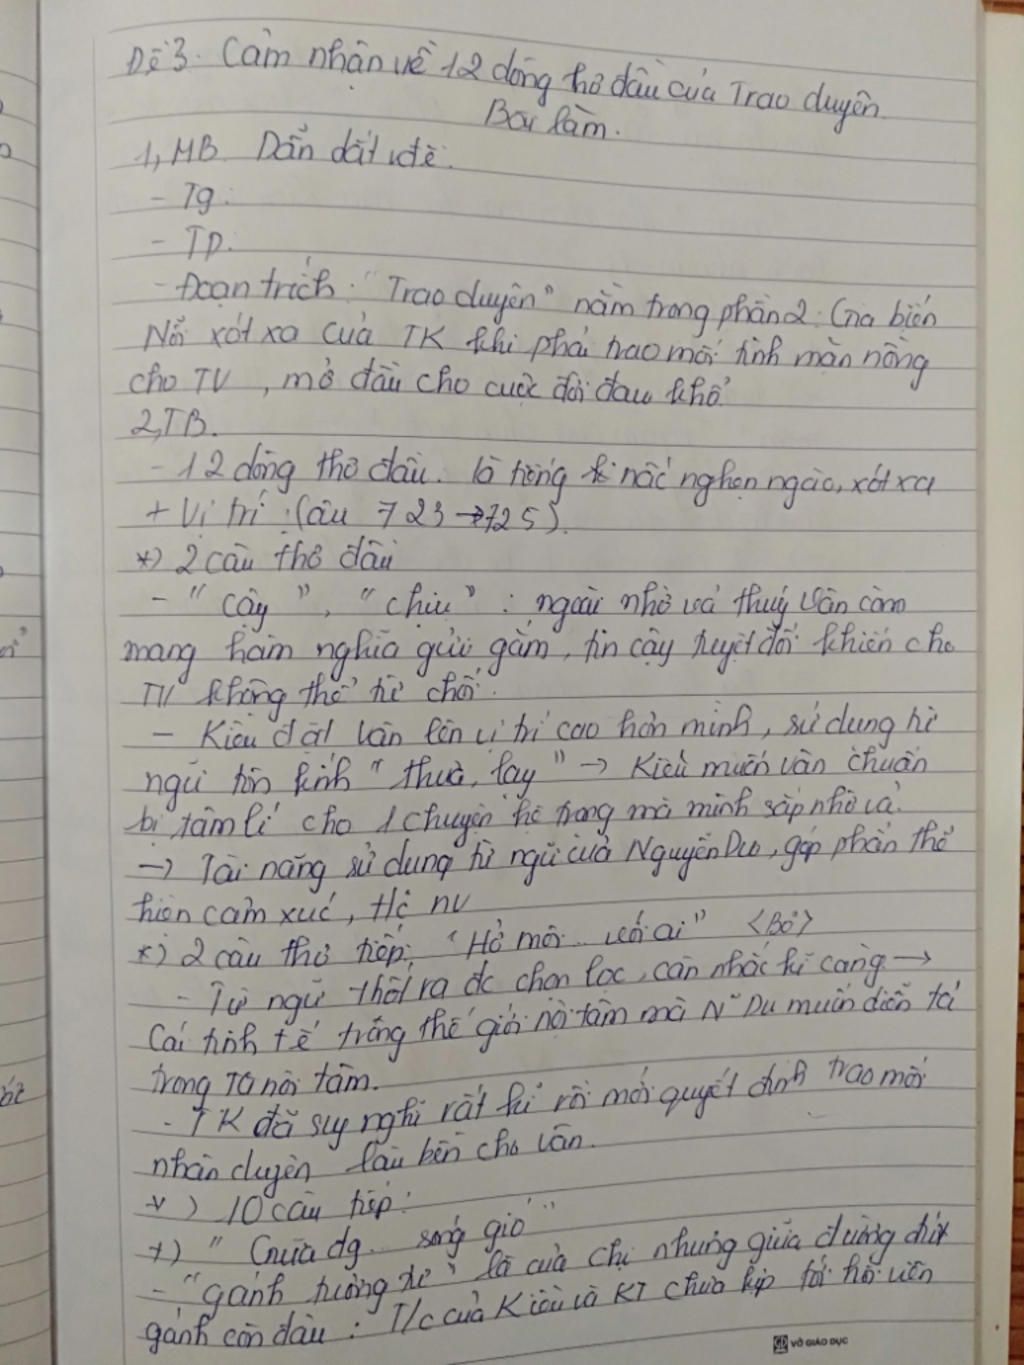 Đề 3. Cảm nhận về 12 dòng thơ đầu của Trao duyên.
Bài làm.
1, MB. Dẫn dắt vđề.
- Tg.
- TP.
- Đoạn trích: "Trao duyên" nằm trong phần 2: Gia biến
Nỗi xót xa của TK khi phải trao mối tình mặn nồng
cho TV, mở đầu cho cuộc đời đau khổ
2, TB.
- 12 dòng thơ đầu. là tiếng nấc nghẹn ngào, xót xa
+ Vị trí: (câu 723 → 725).
*) 2 câu thơ đầu
- "cậy", "chịu": ngoài nhờ vả thuý Vân còn
mang hàm nghĩa gửi gắm, tin cậy tuyệt đối khiến cho
TV không thể từ chối.
- Kiều đặt Vân lên vị trí cao hơn mình, sử dụng từ
ngữ tôn kính "thưa, lạy" → Kiều muốn Vân chuẩn
bị tâm lí cho 1 chuyện hệ trọng mà mình sắp nhờ vả.
→ Tài năng sử dụng từ ngữ của Nguyễn Du, góp phần thể
hiện cảm xúc, nv
*) 2 câu thơ tiếp: "Hở môi... với ai" <Bỏ>
- Từ ngữ thốt ra đc chọn lọc, cân nhắc kĩ càng →
Cái tinh tế trong thế giới nội tâm mà Nᵕ Du muốn diễn tả
trong nội tâm.
- TK đã suy nghĩ rất kĩ rồi mới quyết định trao mối
nhân duyên lâu bền cho Vân.
*) 10 câu tiếp:
+) "Giữa đg... gió"
- "gánh tương tư" là của chị nhưng giữa đường đứt
gánh còn đâu: T/c của Kiều và KT chưa kịp tới hồi viên
VỞ GIÁO DỤC